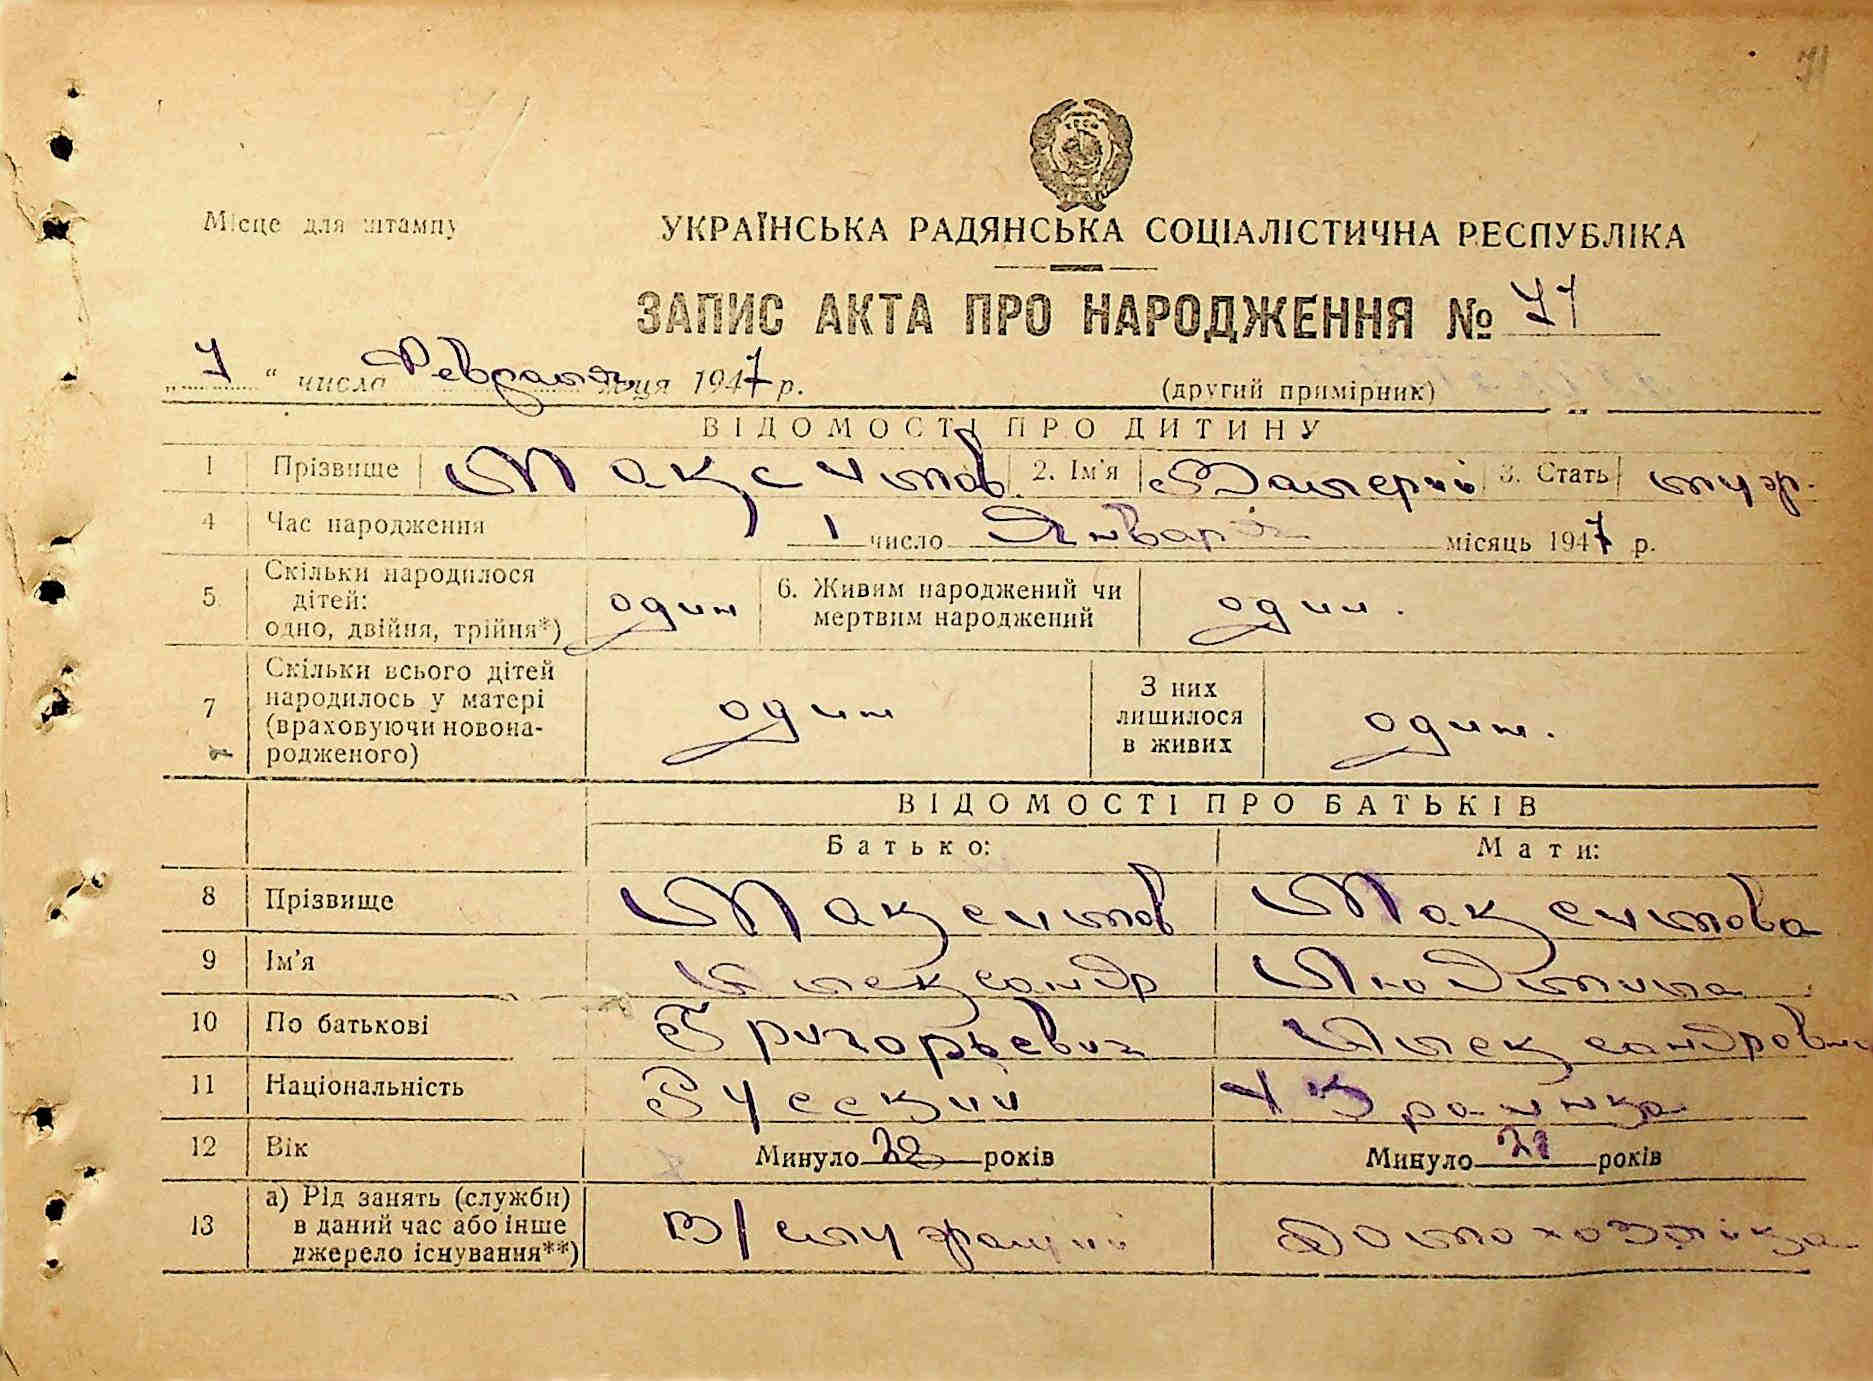 71
Місце для штампу
УКРАЇНСЬКА РАДЯНСЬКА СОЦІАЛІСТИЧНА РЕСПУБЛІКА
ЗАПИС АКТА ПРО НАРОДЖЕННЯ № 71
„7“ числа Февраля м-ця 1947 р.
(другий примірник)
ВІДОМОСТІ ПРО ДИТИНУ
1 Прізвище Максимов 2. Ім'я Валерий 3. Стать муж.
4 Час народження 1 число Января місяць 1947 р.
5 Скільки народилося дітей: одно, двійня, трійня*) один 6. Живим народжений чи мертвим народжений один.
7 Скільки всього дітей народилось у матері (враховуючи новонародженого) один З них лишилося в живих один.
ВІДОМОСТІ ПРО БАТЬКІВ
Батько: Мати:
8 Прізвище Максимов Максимова
9 Ім'я Александр Людмила
10 По батькові Григорьевич Александровна
11 Національність Русский Украинка
12 Вік Минуло років Минуло 21 років
13 а) Рід занять (служби) в даний час або інше джерело існування**) В/служащий Домохозяйка